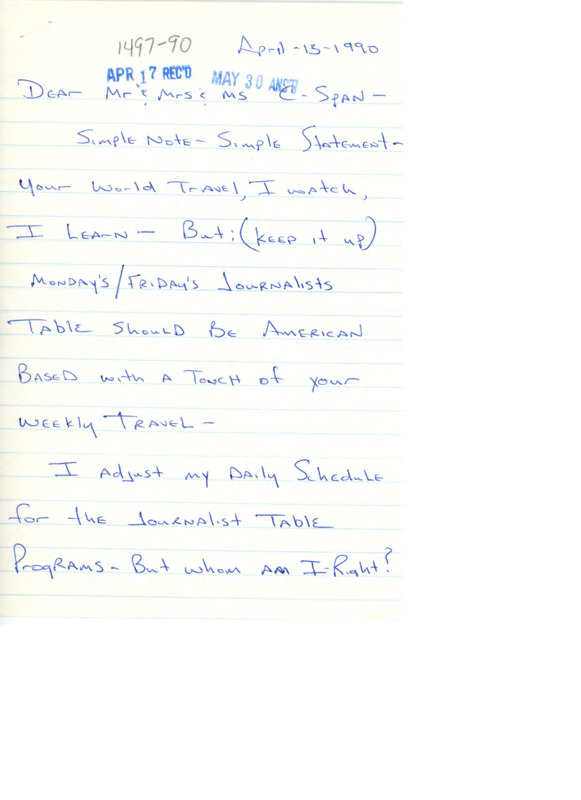 1497-90 April-13-1990
APR 17 REC'D MAY 30 ANS'D
DEAR Mr & Mrs & MS C-SPAN-
Simple Note- Simple Statement-
Your World Travel, I watch,
I LEARN- But: (KEEP it up)
MONDAY'S/FRIDAY'S JOURNALISTS
TABLE SHOULD BE AMERICAN
BASED with A Touch of your
WEEKly TRAVEL-
I Adjust my DAily Schedule
for the JOURNALIST TABLE
PROGRAMS- But whom AM I-Right?